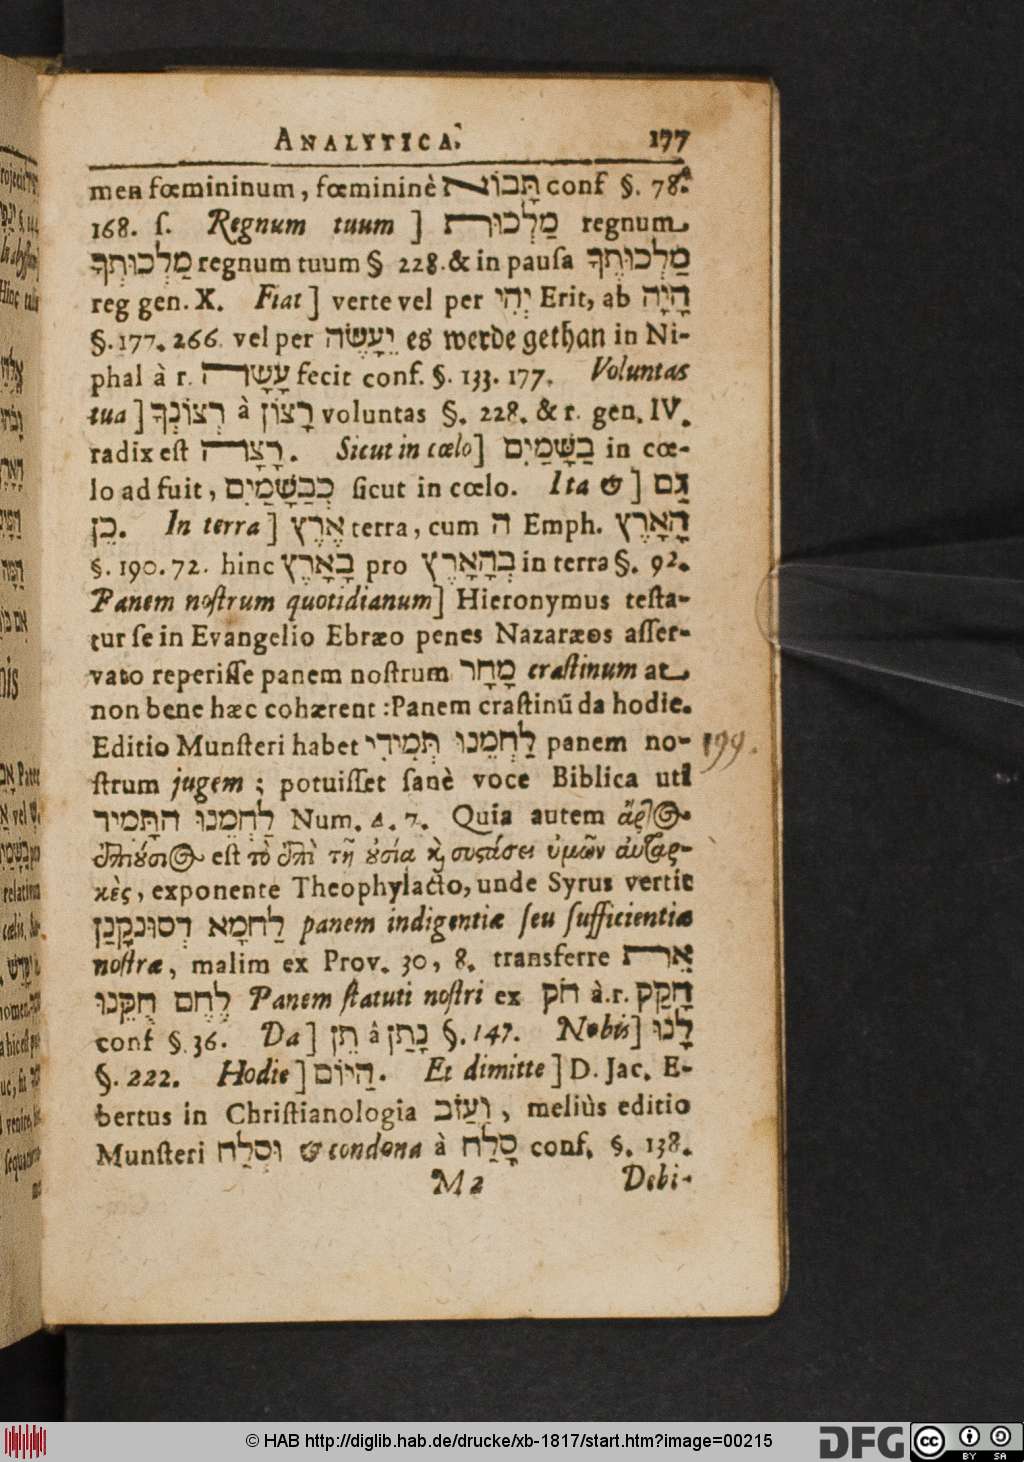 ANALYTICA. 177
men fœmininum, fœmininè תָּבוֹא conf §. 78.
168. ſ. Regnum tuum ] מַלְכוּת regnum
מַלְכוּתְךָ regnum tuum § 228. & in pauſa מַלְכוּתֶךָ
reg gen. X. Fiat ] verte vel per יְהִי Erit, ab הָיָה
§. 177. 266. vel per יֵעָשֶׂה es werde gethan in Ni-
phal à r. עָשָׂה fecit conf. §. 133. 177. Voluntas
tua ] רְצוֹנְךָ à רָצוֹן voluntas §. 228. & r. gen. IV.
radix eſt רָצָה. Sicut in cœlo] בַשָּׁמַיִם in cœ-
lo ad fuit, כְּבַשָּׁמַיִם ſicut in cœlo. Ita & ] גַם
כֵן. In terra ] אֶרֶץ terra, cum ה Emph. הָאָרֶץ
§. 190. 72. hinc בָאָרֶץ pro בְהָאָרֶץ in terra §. 92.
Panem noſtrum quotidianum] Hieronymus teſta-
tur ſe in Evangelio Ebræo penes Nazaræos aſſer-
vato reperiſſe panem noſtrum מָחָר craſtinum at
non bene hæc cohærent : Panem craſtinũ da hodie.
Editio Munſteri habet לַחְמֵנוּ תְּמִידִי panem no- 199.
ſtrum jugem ; potuiſſet ſanè voce Biblica uti
לַחְמֵנוּ התָּמִיד Num. 4. 7. Quia autem ἄρτος
ἐπιούσιος eſt τὸ ἐπὶ τῇ ὐσίᾳ ϗ συστάσει ὑμῶν ἀυταρ-
κὲς, exponente Theophylacto, unde Syrus vertit
לַחמָא דְסוּנקָנַן panem indigentiæ ſeu ſufficientiæ
noſtræ, malim ex Prov. 30, 8. transferre אֵת
לֶחֶם חֻקֵּנוּ Panem ſtatuti noſtri ex חֹק à.r. חָקַק
conf § 36. Da ] תֵן à נָתַן §. 147. Nobis] לָנוּ
§. 222. Hodie ] הַיוֹם. Et dimitte ] D. Jac. E-
bertus in Chriſtianologia וַעֲזֹב, meliùs editio
Munſteri וּסְלַח & condona à סָלַח conf. §. 138.
M 2 Debi-
© HAB http://diglib.hab.de/drucke/xb-1817/start.htm?image=00215
DFG
cc BY SA